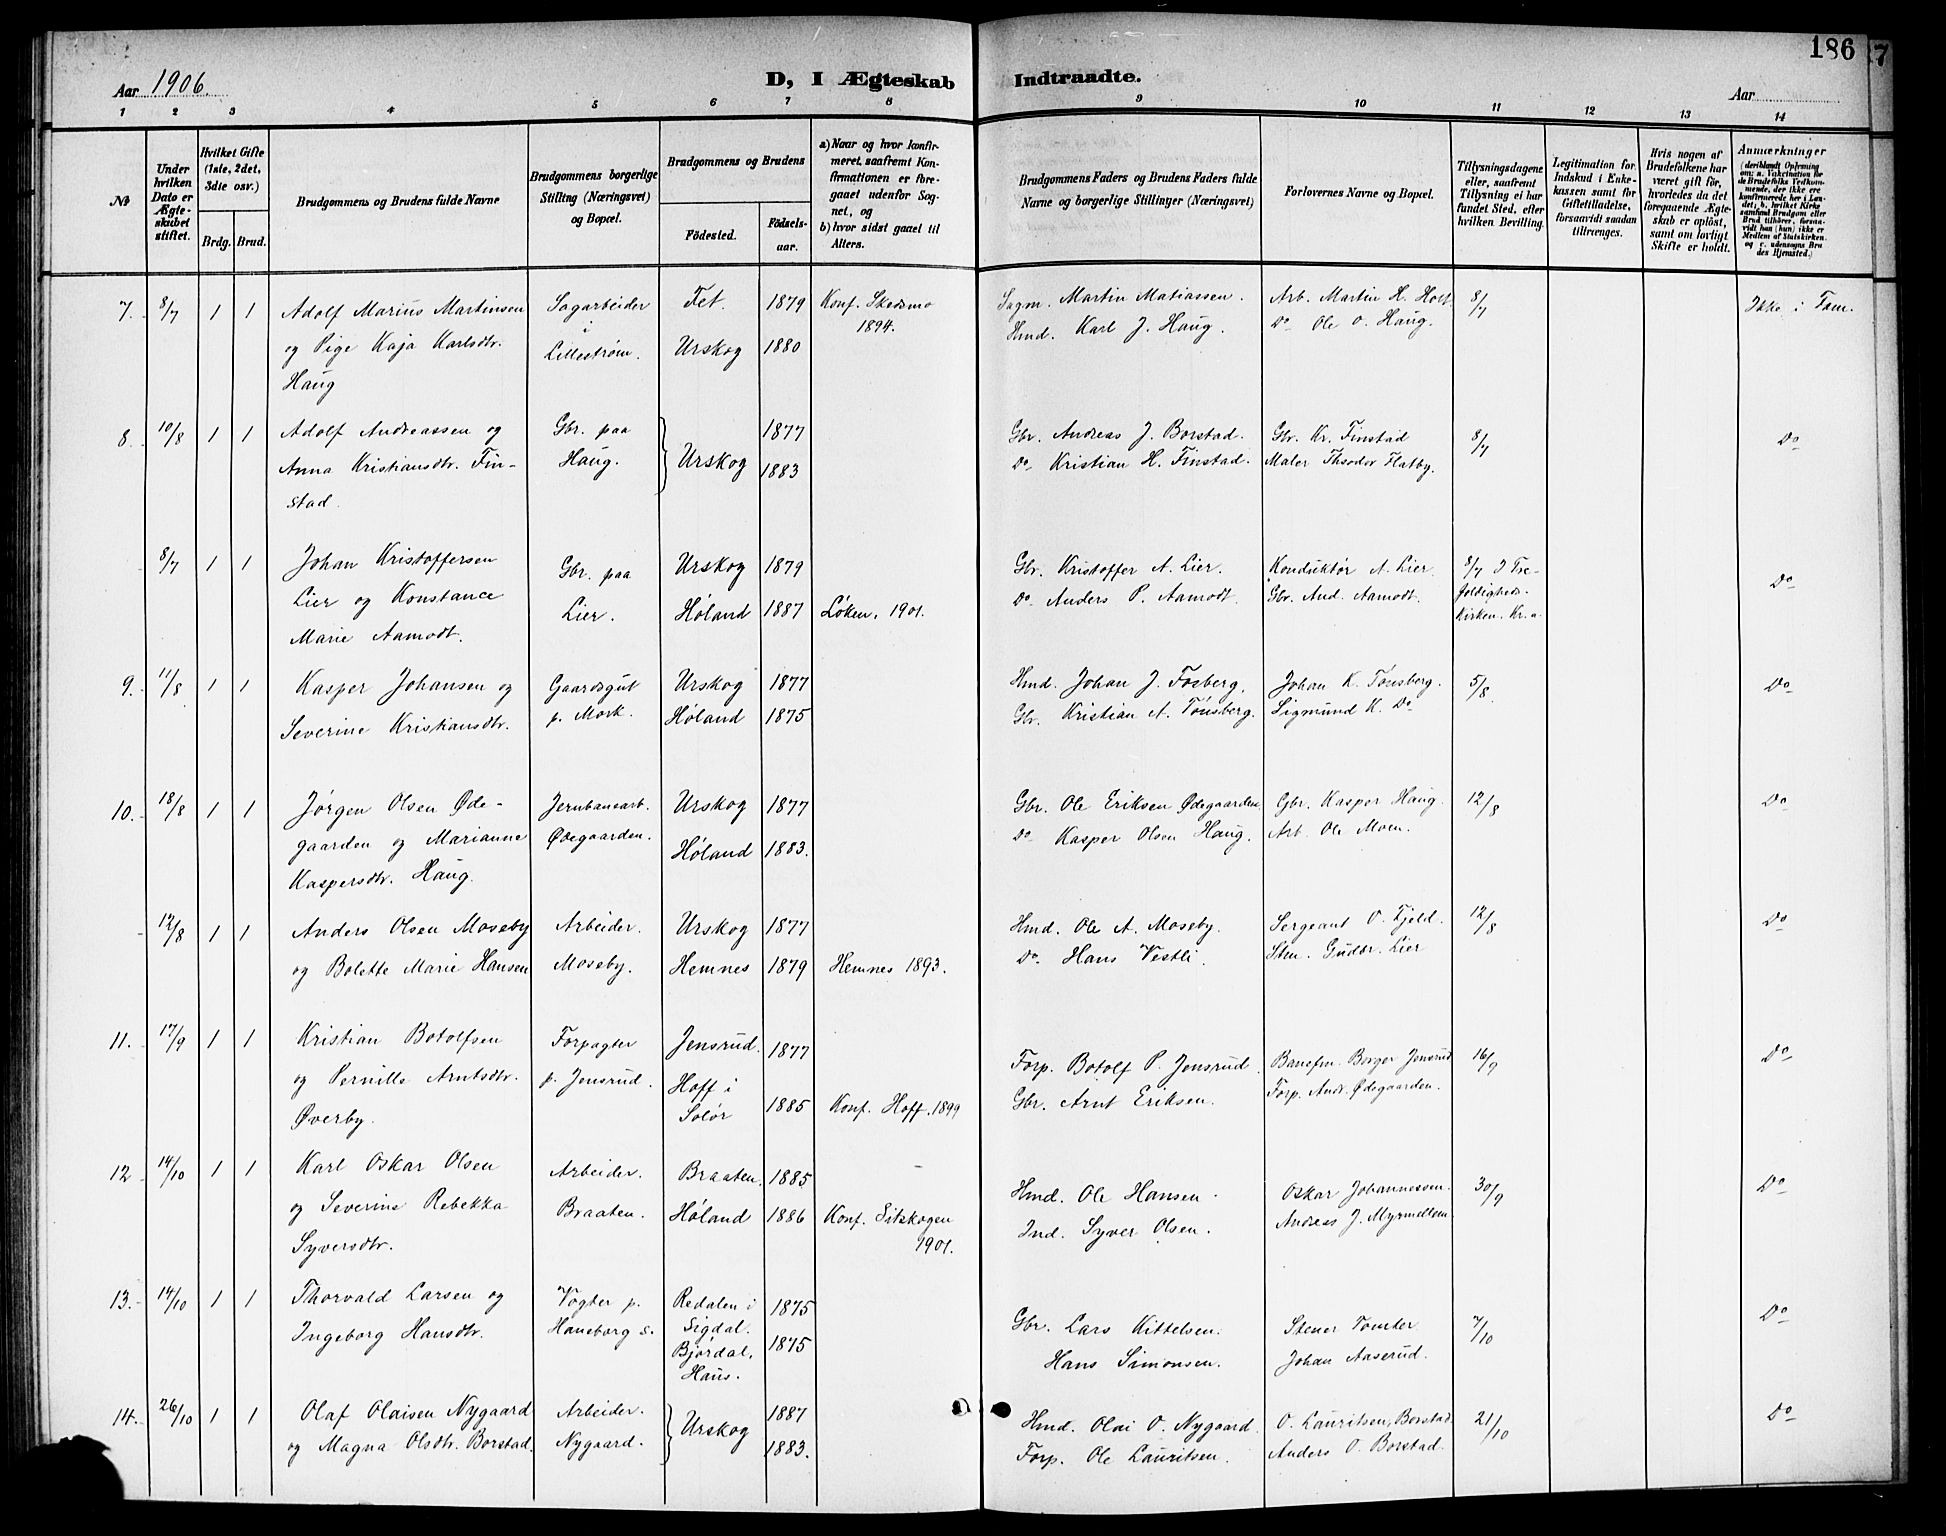 186
7
Aar 1906.
D, I Ægteskab Indtraadte.
Aar
1 2 3 4 5 6 7 8 9 10 11 12 13 14
№
Under hvilken Dato er Ægteskabet stiftet.
Hvilket Gifte (1ste, 2det, 3die osv.)
Brdg. Brud.
Brudgommens og Brudens fulde Navne
Brudgommens borgerlige Stilling (Næringsvei) og Bopæl.
Brudgommens og Brudens
Födested.
Födselsaar.
a) Naar og hvor konfirmeret, saafremt Konfirmationen er foregaaet udenfor Sognet, og
b) hvor sidst gaaet til Alters.
Brudgommens Faders og Brudens Faders fulde Navne og borgerlige Stillinger (Næringsvei)
Forlovernes Navne og Bopæl.
Tillysningsdagene eller, saafremt Tillysning ei har fundet Sted, efter hvilken Bevilling.
Legitimation for Indskud i Enkekassen samt for Giftetilladelse, forsaavidt saadan tiltrænges.
Hvis nogen af Brudefolkene har været gift för, hvorledes da det foregaaende Ægteskab er oplöst, samt om lovligt Skifte er holdt.
Anmærkninger (deriblandt Oplysning om: a. Vakcination for de Brudefolks Vedkommende, der ikke ere konfirmerede her i Landet; b. hvilket Kirkesamfund Brudgom eller Brud tilhörer, forsaavidt han (hun) ikke er Medlem af Statskirken, og c. udensogns Brudes Hjemsted.)
7. 8/7 1 1 Adolf Marius Martinsen Sagarbeider Fet. 1879 Konf. Skedsmo Sagm. Martin Matiassen. Arb. Martin H. Holt 8/7 Ikke i Fam.
og Pige Kaja Karlsdtr. i Lillestrøm. Urskog 1880 1894. Hmd. Karl J. Haug. Do Ole O. Haug.
Haug
8. 10/8 1 1 Adolf Andreassen og Gbr. paa Urskog 1877 Gbr. Andreas J. Borstad. Gbr. Kr. Finstad 8/7 Do
Anna Kristiansdtr. Fin- Haug. 1883 Do Kristian H. Finstad. Maler Theodor Flatby.
stad.
8/7 1 1 Johan Kristoffersen Gbr. paa Urskog 1879 Gbr. Kristoffer A. Lier. Konduktør A. Lier. 8/7 I Tre-
Lier og Konstance Lier. Høland 1887 Løken. 1901. Do Anders P. Aamodt. Gbr. And. Aamodt. foldigheds- Do
Marie Aamodt. Kirken. Kr.a.
9. 11/8 1 1 Kasper Johansen og Gaardsgut Urskog 1877 Hmd. Johan J. Fosberg. Johan K. Tønsberg. 5/8. Do
Severine Kristiansdtr. p. Mork. Høland 1875 Gbr. Kristian A. Tønsberg. Sigmund K. Do
10. 18/8 1 1 Jørgen Olsen Øde- Jernbanearb. Urskog 1877 Gbr. Ole Eriksen Ødegaarden Gbr. Kasper Haug. 12/8 Do
gaarden og Marianne Ødegaarden. Høland 1883. Do Kasper Olsen Haug. Arb. Ole Moen.
Kaspersdtr. Haug.
- 12/8 1 1 Anders Olsen Moseby Arbeider. Urskog 1877 Hmd. Ole A. Moseby. Sergeant O. Fjeld. 12/8 Do
og Bolette Marie Hansen Moseby. Hemnes 1879 Hemnes 1893. Do Hans Vestli. Sten. Gudbr. Lier
11. 17/9 1 1 Kristian Botolfsen Forpagter Jensrud. 1877 Forp. Botolf P. Jensrud. Banefm. Borger Jensrud 16/9 Do
og Pernille Arntsdtr. p. Jensrud. Hoff i Solør 1885 Konf. Hoff. 1899 Gbr. Arnt Eriksen. Forp. Andr. Ødegaarden.
Øverby.
12 14/10 1 1 Karl Oskar Olsen Arbeider. Braaten. 1885 Hmd. Ole Hansen. Oskar Johannessen. 30/9 Do
og Severine Rebekka Braaten. Høland 1886 Konf. Sitskogen Ind. Syver Olsen. Andreas J. Myrmellem.
Syversdtr. 1901.
13. 14/10 1 1 Thorvald Larsen og Vogter p. Redalen i Sigdal. 1875 Gbr. Lars Kittelsen. Stener Tomter 7/10 Do
Ingeborg Hansdtr. Haneborg s. Bjørdal, Haus. 1875 Hans Simonsen. Johan Aaserud.
14. 26/10 1 1 Olaf Olaisen Nygaard Arbeider. Urskog 1887 Hmd. Olai O. Nygaard. O. Lauritsen, Borstad 21/10 Do
og Magna Olsdtr. Borstad. Nygaard. 1883. Forp. Ole Lauritsen. Anders O. Borstad.